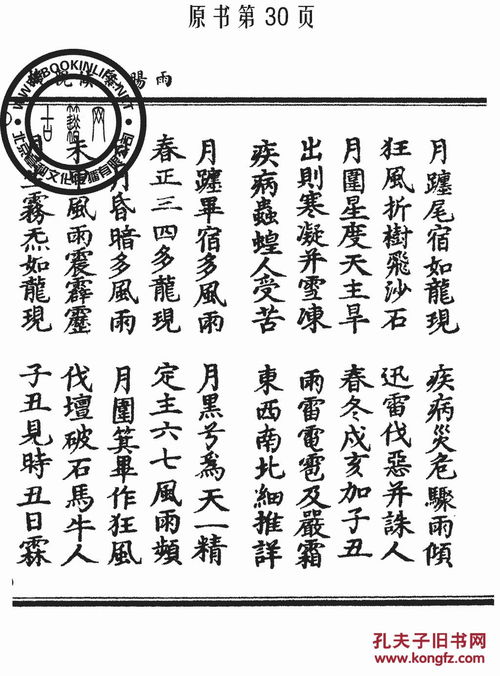 原书第30页
雨暘
月躔尾宿如龍現 疾病災危驟雨傾
狂風折樹飛沙石 迅雷伐惡并誅人
月圍星度天主旱 春冬戌亥加子丑
出則寒凝并雪凍 雨雷電雹及嚴霜
疾病蟲蝗人受苦 東西南北細推詳
月躔畢宿多風雨 月黑兮為天一精
春正三四多龍現 定主六七風雨頻
月昏暗多風雨 月圍箕畢作狂風
風雨震霹靂 伐壇破石馬牛人
霧炁如龍現 子丑見時丑日霖
WWW.BOOKINLIFE.NET
孔夫子旧书网
www.kongfz.com